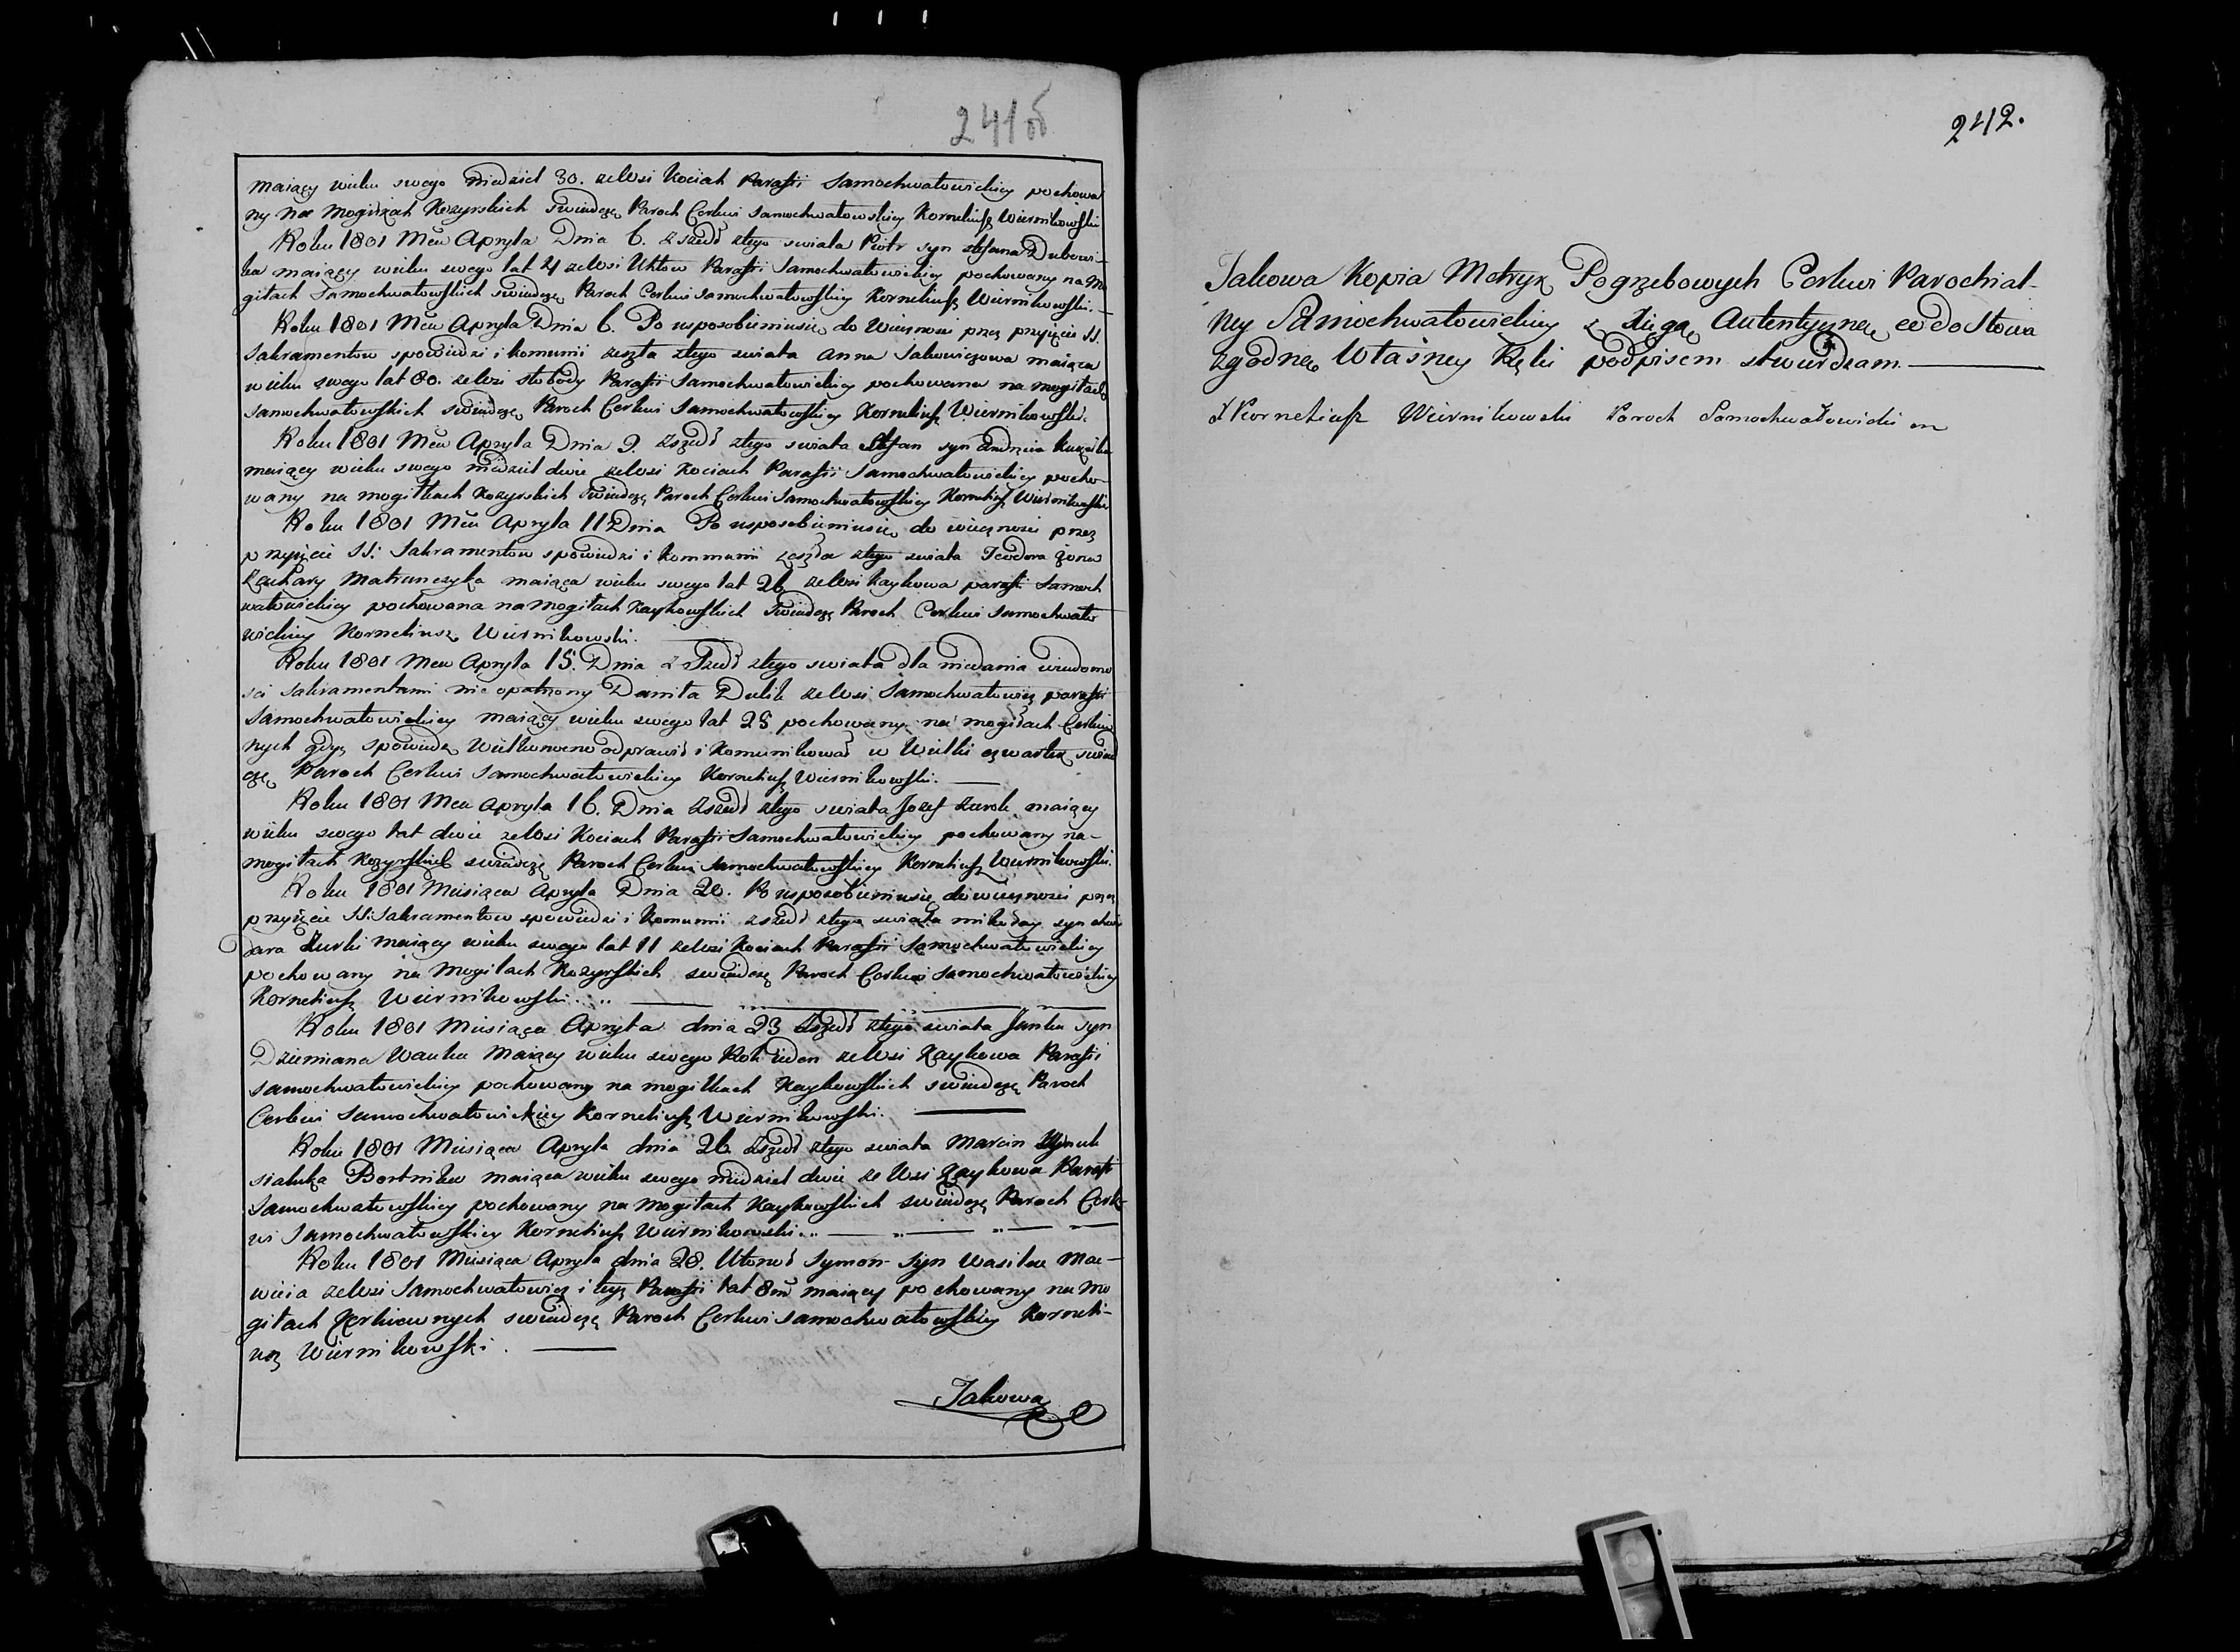 241об
maiący wieku swego niedziel 30. zeWsi Kociah Parafii Samochwałowickiey pochowa
ny na Mogiłkach Kozyrskich świadczę Paroch Cerkwi Samochwałowskiey Korneliusz Wiernikowski
Roku 1801 Mca Apryla Dnia 6. zszedł ztego swiata Piotr syn stefana Dubowi-
ka maiący wieku swego lat 4 zeWsi Parafii Samochwałowickiey pochowany na Mo
giłach Samochwałowskich świadczę Paroch Cerkwi Samochwałowskiey Korneliusz Wiernikowski.
Roku 1801 Mca Apryla Dnia 6. Po usposobieniusię do Wieczności przez przyięcie SS.
Sakramentow spowiedzi i komunii zeszła ztego swiata Anna Sakowiczowa maiąca
wieku swego lat 80. zeWsi słobody Parafii Samochwałowickiey pochowana na mogiłach
Samochwałowskich świadczę Paroch Cerkwi Samochwałowskiey Korneliusz Wiernikowski.
Roku 1801 Mca Apryla Dnia 9. zszedł ztego swiata Stefan syn Andrzeia
maiący wieku swego niedziel dwie zeWsi Kociach Parafii Samochwałowickiey pocho-
wany na mogiłkach Kozyrskich świadczę Paroch Cerkwi Samochwałowskiey Korneliusz Wiernikowski
Roku 1801 Mca Apryla 11 Dnia Po usposobieniusię do wieczności przez
przyięcie SS: Sakramentow spowiedzi i Kommunii zeszła ztego swiata Teodora żona
Zachary Matrunczyka maiąca wieku swego lat 26 zeWsi Zaykowa parafii Samoch
wałowickiey pochowana na Mogiłach Zaykowskich świadczę Paroch Cerkwi Samochwało
wickiey Korneliusz Wiernikowski.
Roku 1801 Mca Apryla 15. Dnia zszedł ztego swiata dla niedania wiadomo
sci Sakramentami nie opatrzony Daniła Dulik zeWsi Samochwałowicz parafii
Samochwałowickiey maiący wieku swego lat 25 pochowany na mogiłach Cerkiew
nych gdyż spowiedź Wielkonocną odprawił i Komunikował w Wielki czwartek świad
czę Paroch Cerkwi Samochwałowickiey Korneliusz Wiernikowski.
Roku 1801 Mca Apryla 16. Dnia zszedł ztego swiata Jozef Zurok maiący
wieku swego lat dwie zeWsi Kociach Parafii Samochwałowickiey pochowany na-
mogiłach Kozyrskich świadczę Paroch Cerkwi Samochwałowskiey Korneliusz Wiernikowski.
Roku 1801 Miesiąca Apryla Dnia 20. Po usposobieniusię do wieczności przez
przyięcie SS: Sakramentow spowiedzi i Komunii zszedł ztego swiata mikołay syn
dara Zurki maiący wieku swego lat 11 zeWsi Kociach Parafii Samochwałowickiey
pochowany na Mogiłach Kozyrskich świadczę Paroch Cerkwi Samochwałowickiey
Korneliusz Wiernikowski.
Roku 1801 Miesiąca Apryla dnia 23 zszedł ztego swiata Janka syn
Dziemiana Wanka Maiący wieku swego Rok ieden zeWsi Zaykowa Parafii
Samochwałowickiey pochowany na mogiłkach Zaykowskich świadczę Paroch
Cerkwi Samochwałowickiey Korneliusz Wiernikowski.
Roku 1801 Miesiąca Apryla dnia 26 zszedł ztego swiata Marcin
Bortnika maiąca wieku swego niedziel dwie ze Wsi Zaykowa Parafii
Samochwałowskiey pochowany na Mogiłach Zaykowskich świadczę Paroch Cerk-
wi Samochwałowskiey Korneliusz Wiernikowski.
Roku 1801 Miesiąca Apryla dnia 28. Utonoł Symon Syn Wasila Ma-
wieia zeWsi Samochwałowicz i teyż Parafii lat 8m maiący pochowany na Mo
giłach Cerkiewnych świadczę Paroch Cerkwi Samochwałowskiey Korneli-
usz Wiernikowski.
Jakowa
242.
Jakowa Kopia Metryk Pogrzebowych Cerkwi Parochial-
ney Samochwałowickiey z Xięgą Autentyczną co do Słowa
zgodną Własney Ręki podpisem stwierdzam.
X Korneliusz Wiernikowski Paroch Samochwałowicki m